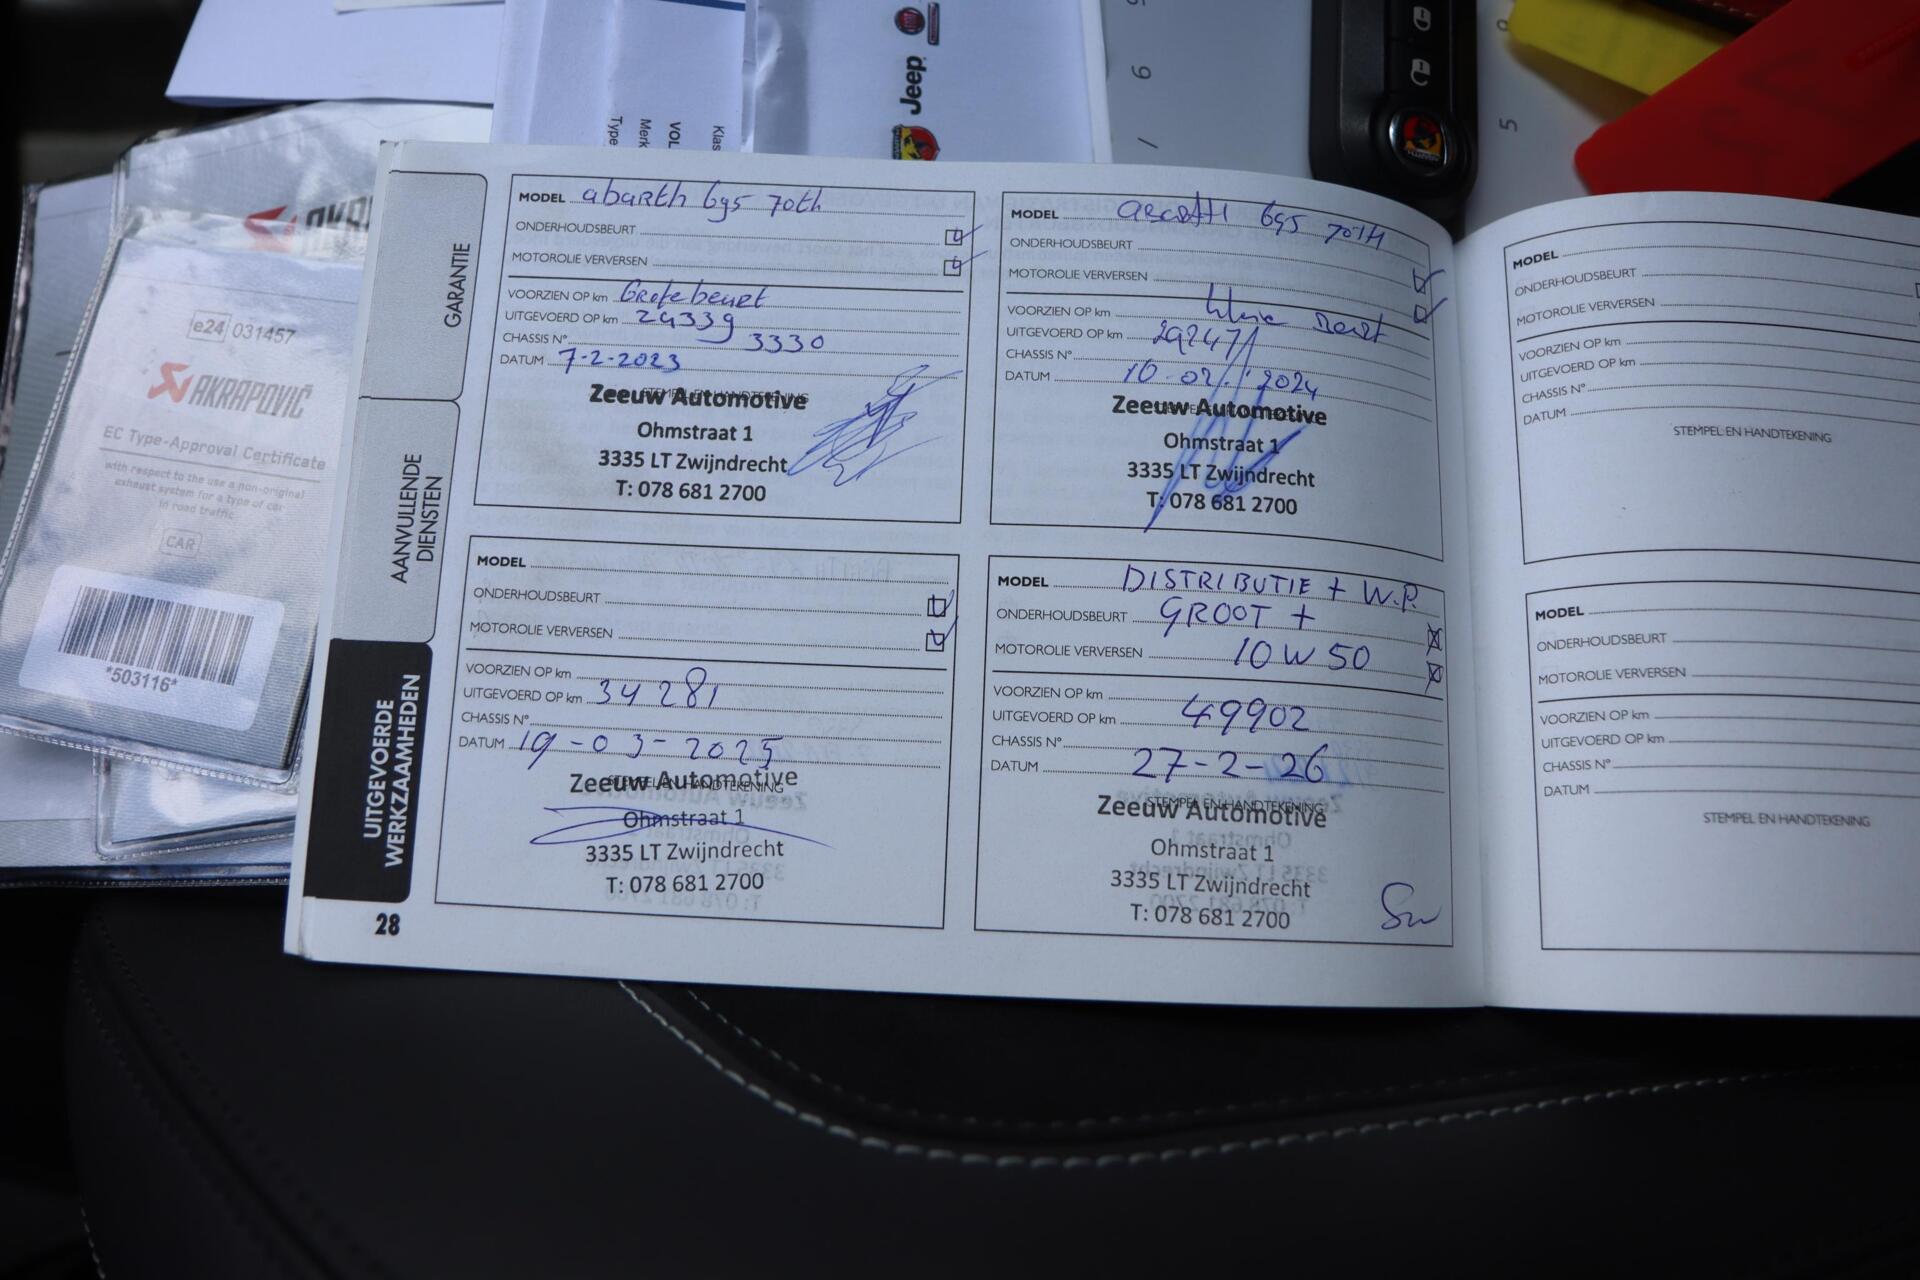 Jeep
Klas
VOL
Merk
Type
6
5
AKRAPOVIČ
e24 031457
AKRAPOVIČ
EC Type-Approval Certificate
with respect to the use a non-original
exhaust system for a type of car
in road traffic
CAR
*503116*
GARANTIE
AANVULLENDE
DIENSTEN
UITGEVOERDE
WERKZAAMHEDEN
28
MODEL abarth 695 70th
ONDERHOUDSBEURT
MOTOROLIE VERVERSEN
VOORZIEN OP km Grote beurt
UITGEVOERD OP km 24339
CHASSIS N° 3330
DATUM 7-2-2023
STEMPEL EN HANDTEKENING
Zeeuw Automotive
Ohmstraat 1
3335 LT Zwijndrecht
T: 078 681 2700
MODEL 695 70TH
ONDERHOUDSBEURT
MOTOROLIE VERVERSEN
VOORZIEN OP km
UITGEVOERD OP km 29247
CHASSIS N°
DATUM 2024
Zeeuw Automotive
Ohmstraat 1
3335 LT Zwijndrecht
T: 078 681 2700
MODEL
ONDERHOUDSBEURT
MOTOROLIE VERVERSEN
VOORZIEN OP km
UITGEVOERD OP km 34281
CHASSIS N°
DATUM 19-03-2025
STEMPEL EN HANDTEKENING
Zeeuw Automotive
Ohmstraat 1
3335 LT Zwijndrecht
T: 078 681 2700
MODEL DISTRIBUTIE + W.P.
ONDERHOUDSBEURT GROOT +
MOTOROLIE VERVERSEN 10W50
VOORZIEN OP km
UITGEVOERD OP km 49902
CHASSIS N°
DATUM 27-2-26
STEMPEL EN HANDTEKENING
Zeeuw Automotive
Ohmstraat 1
3335 LT Zwijndrecht
T: 078 681 2700
MODEL
ONDERHOUDSBEURT
MOTOROLIE VERVERSEN
VOORZIEN OP km
UITGEVOERD OP km
CHASSIS N°
DATUM
STEMPEL EN HANDTEKENING
MODEL
ONDERHOUDSBEURT
MOTOROLIE VERVERSEN
VOORZIEN OP km
UITGEVOERD OP km
CHASSIS N°
DATUM
STEMPEL EN HANDTEKENING